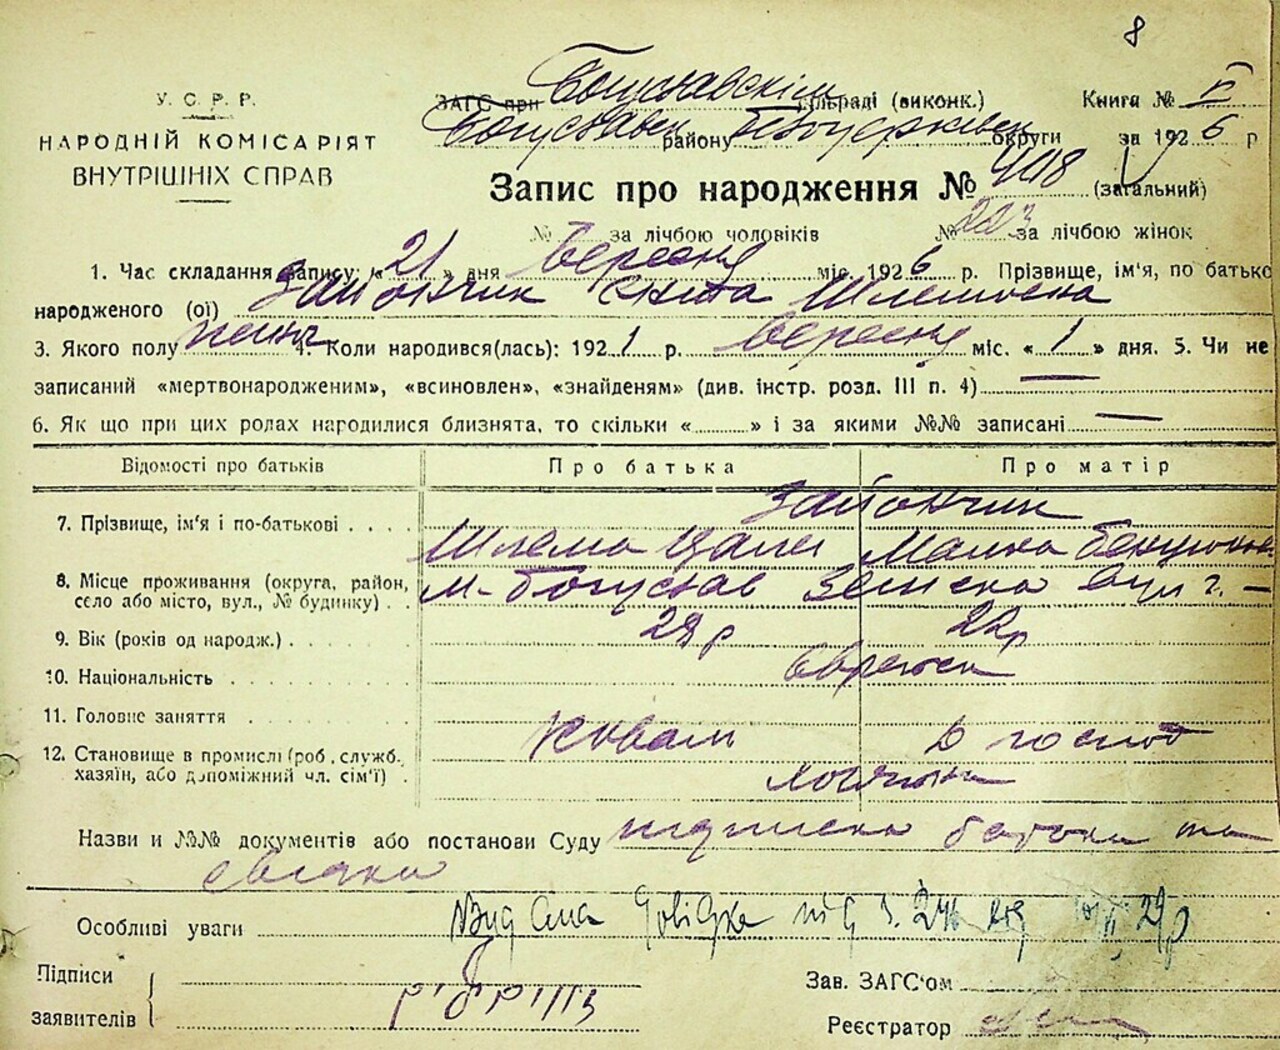 8
У. С. Р. Р.
НАРОДНІЙ КОМІСАРІЯТ
ВНУТРІШНІХ СПРАВ
ЗАГС при Богуславскім сільраді (виконк.) Книга №
Богуславськ району Білоцерківськ округи за 1926 р
Запис про народження № 408 (загальний)
№ за лічбою чоловіків № 223 за лічбою жінок
1. Час складання запису: «21» дня вересня міс. 1926 р. Прізвище, ім'я, по батькові
народженого (ої) Зайончик Шлемовна
3. Якого полу жіноч 4. Коли народився(лась): 1921 р. вересня міс. «1» дня. 5. Чи не
записаний «мертвонародженим», «всиновлен», «знайденям» (див. інстр. розд. III п. 4) —
6. Як що при цих ролах народилися близнята, то скільки « » і за якими №№ записані —
Відомості про батьків Про батька Про матір
Зайончик
7. Прізвище, ім'я і по-батькові Шлема Малка
8. Місце проживання (округа, район, село або місто, вул., № будинку) м. Богуслав Земська вул
9. Вік (років од народж.) 29 р 22 р
10. Національність Єврейськ
11. Головне заняття Коваль Д господ
12. Становище в промислі (роб., служб. хазяїн, або допоміжний чл. сім'ї)
Назви и №№ документів або постанови Суду підписка батька та
свідки
Особливі уваги Видана довідка від
Підписи
заявителів
Зав. ЗАГС'ом
Реєстратор